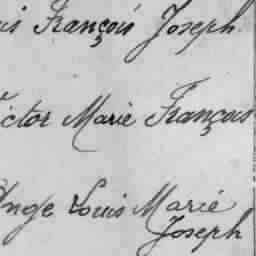 is François Joseph
ictor Marie François
Ange Louis Marie
Joseph